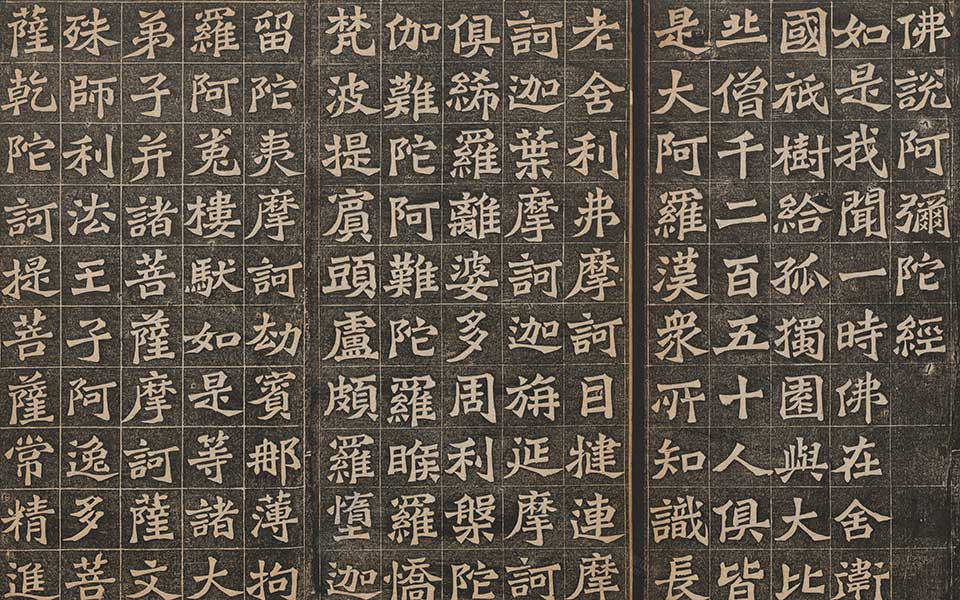 佛說阿彌陀經
如是我聞一時佛在舍衛
國祇樹給孤獨園與大比
丘僧千二百五十人俱皆
是大阿羅漢眾所知識長
老舍利弗摩訶目揵連摩
訶迦葉摩訶迦旃延摩訶
俱絺羅離婆多周利槃陀
伽難陀阿難陀羅睺羅憍
梵波提賓頭盧頗羅墮迦
留陀夷摩訶劫賓那薄拘
羅阿㝹樓馱如是等諸大
弟子并諸菩薩摩訶薩文
殊師利法王子阿逸多菩
薩乾陀訶提菩薩常精進